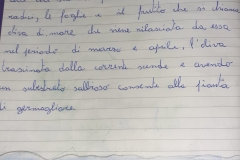 radici, le foglie e il frutto che si chiama
oliva di mare che viene rilasciata da essa
nel periodo di marzo e aprile, l'oliva
trascinata dalla corrente scende e avendo
un substrato sabbioso consente alla pianta
di germogliare.